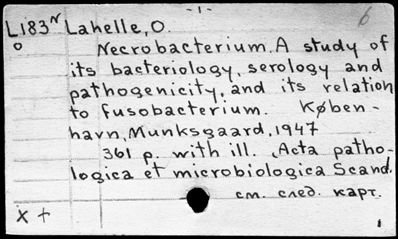 -1-
6
L183ᴺ Lahelle, O.
o
Necrobacterium. A study of
its bacteriology, serology and
pathogenicity, and its relation
to fusobacterium. Køben-
havn, Munksgaard, 1947
361 p. with ill. Acta patho-
logica et microbiologica Scand.
см. след. карт.
X +